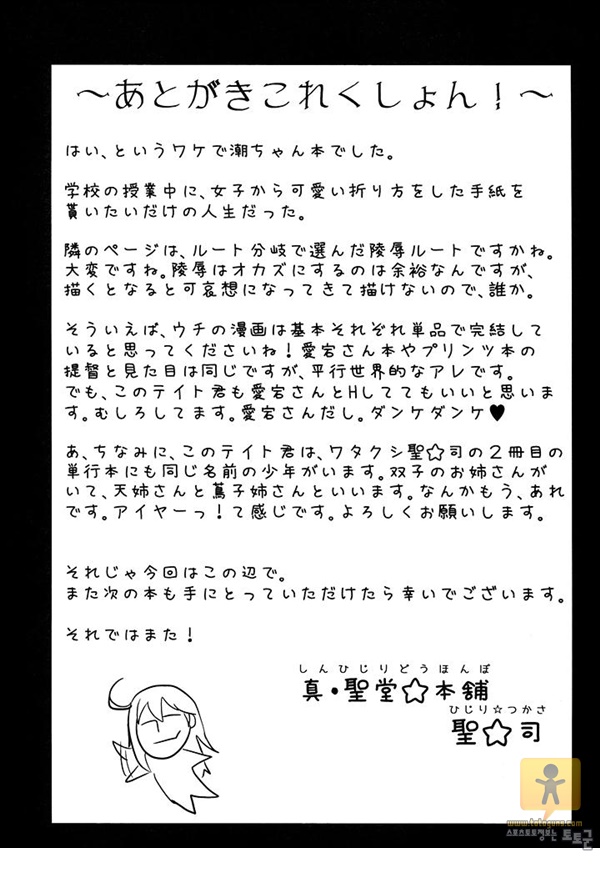 ～あとがきこれくしょん！～
はい、というワケで潮ちゃん本でした。
学校の授業中に、女子から可愛い折り方をした手紙を
貰いたいだけの人生だった。
隣のページは、ルート分岐で選んだ陵辱ルートですかね。
大変ですね。陵辱はオカズにするのは余裕なんですが、
描くとなると可哀想になってきて描けないので、誰か。
そういえば、ウチの漫画は基本それぞれ単品で完結して
いると思ってくださいね！愛宕さん本やプリンツ本の
提督と見た目は同じですが、平行世界的なアレです。
でも、このテイト君も愛宕さんとHしててもいいと思いま
す。むしろしてます。愛宕さんだし。ダンケダンケ♥
あ、ちなみに、このテイト君は、ワタクシ聖☆司の２冊目の
単行本にも同じ名前の少年がいます。双子のお姉さんが
いて、天姉さんと蔦子姉さんといいます。なんかもう、あれ
です。アイヤーっ！て感じです。よろしくお願いします。
それじゃ今回はこの辺で。
また次の本も手にとっていただけたら幸いでございます。
それではまた！
しんひじりどうほんぽ
真・聖堂☆本舗
ひじり☆つかさ
聖☆司
www.totoguns.com
토토군